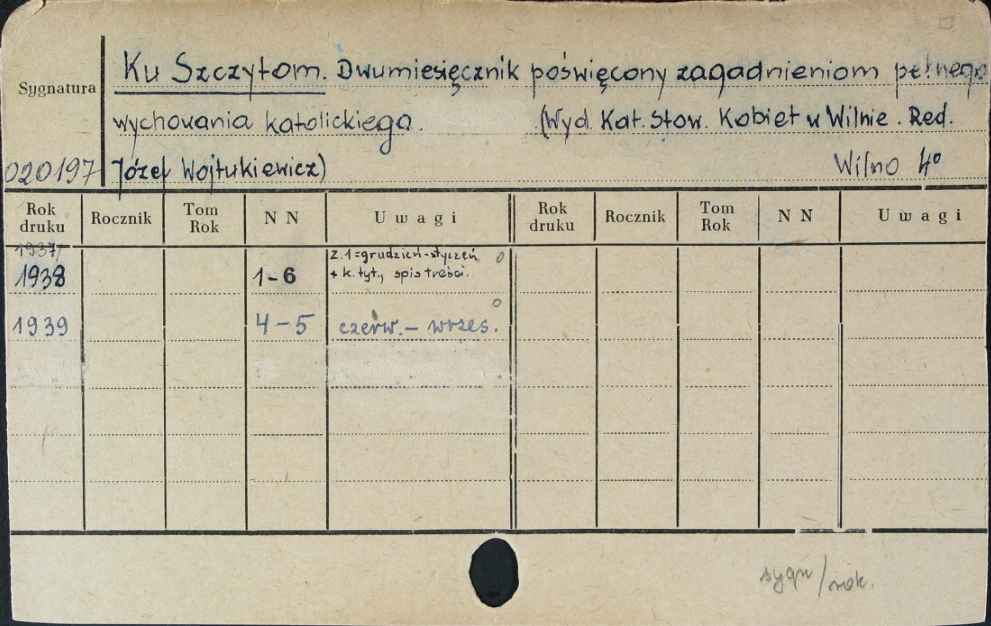 Ku Szczytom. Dwumiesięcznik poświęcony zagadnieniom pełnego
Sygnatura
wychowania katolickiego. (Wyd. Kat. Stow. Kobiet w Wilnie. Red.
020197 Józef Wojtukiewicz) Wilno 4°
Rok druku Rocznik Tom Rok N N Uwagi Rok druku Rocznik Tom Rok N N Uwagi
1937/ z. 1=grudzień-styczeń
1938 1-6 + k. tyt., spis treści.
1939 4-5 czerw. - wrzes.
sygn/rok.